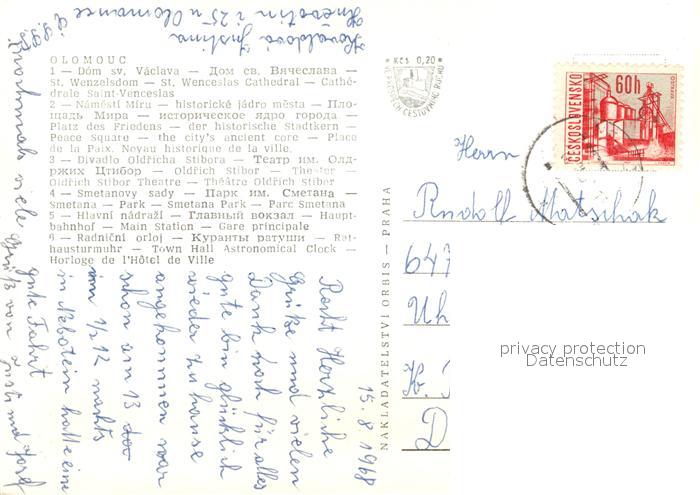 OLOMOUC
1 — Dóm sv. Václava — Дом св. Вячеслава —
St. Wenzelsdom — St. Wenceslas Cathedral — Cathé-
drale Saint-Venceslas
2 — Náměstí Míru — historické jádro města — Пло-
щадь Мира — историческое ядро города —
Platz des Friedens — der historische Stadtkern —
Peace Square — the city's ancient core — Place
de la Paix. Noyau historique de la ville.
3 — Divadlo Oldřicha Stibora — Театр им. Олд-
ржих Цтибор — Oldřich Stibor — Theater —
Oldřich Stibor Theatre — Théâtre Oldřich Stibor
4 — Smetanovy sady — Парк им. Сметана —
Smetana — Park — Smetana Park — Parc Smetana
5 — Hlavní nádraží — Главный вокзал — Haupt-
bahnhof — Main Station — Gare principale
6 — Radniční orloj — Куранты ратуши — Rat-
hausturmuhr — Town Hall Astronomical Clock —
Horloge de l'Hôtel de Ville
15. 8 1968
Recht Herzliche
Grüße und vielen
Dank noch für alles
gute bin glücklich
wieder zu hause
angekommen war
schon um 13 00
im 1/2 12 nachts
in Nebotein hatte eine
gute Fahrt
Nochmals viele Grüß von Justi und Josef
Justina
i 25 u Olomouce
NAKLADATELSTVÍ ORBIS — PRAHA
Kčs 0,20
60h
ČESKOSLOVENSKO
Herrn
Rudolf Matschak
647
Uh
K.
D
privacy protection
Datenschutz